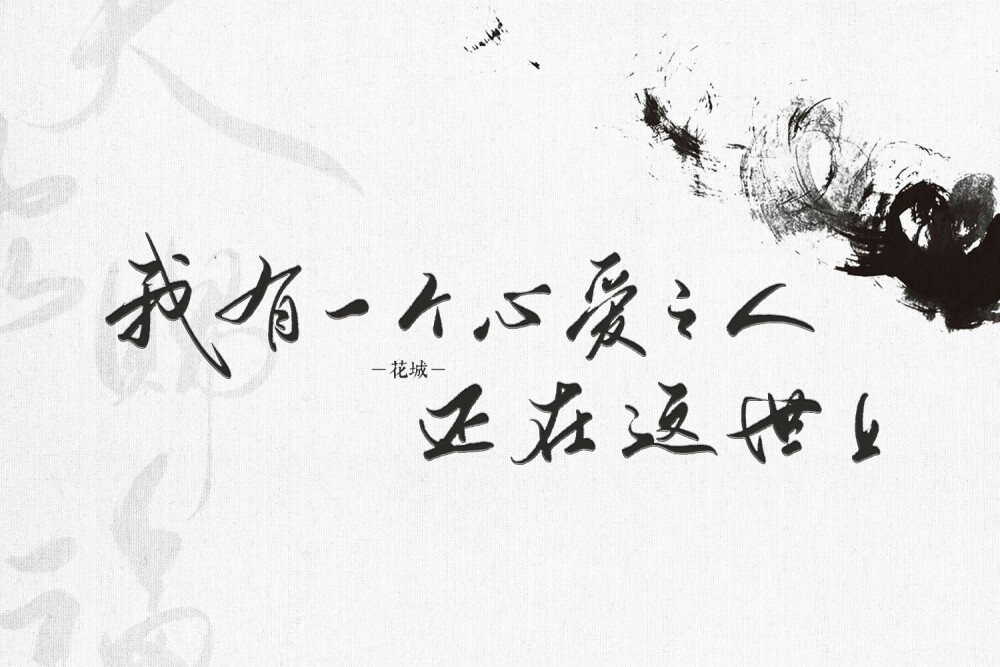 我有一个心爱之人
-花城-
还在这世上